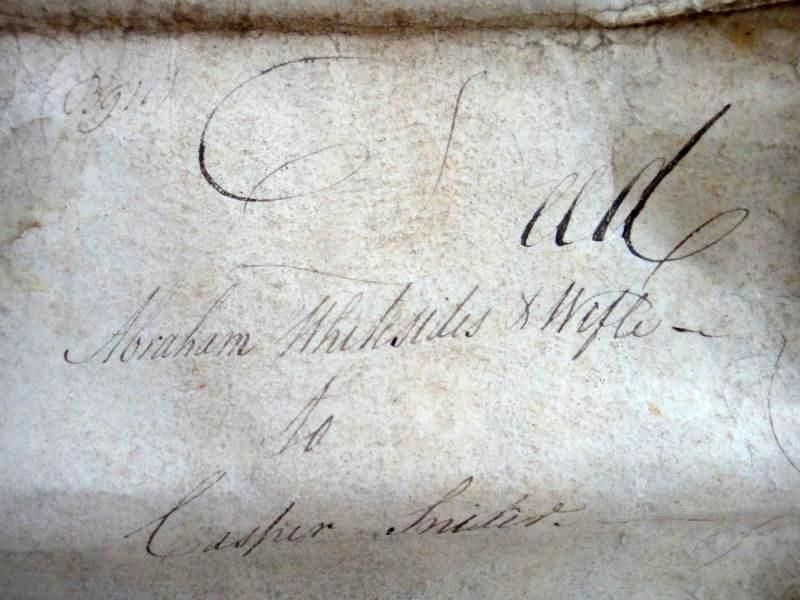 Deed
Abraham Whitesides & Wife
to
Casper Snider.